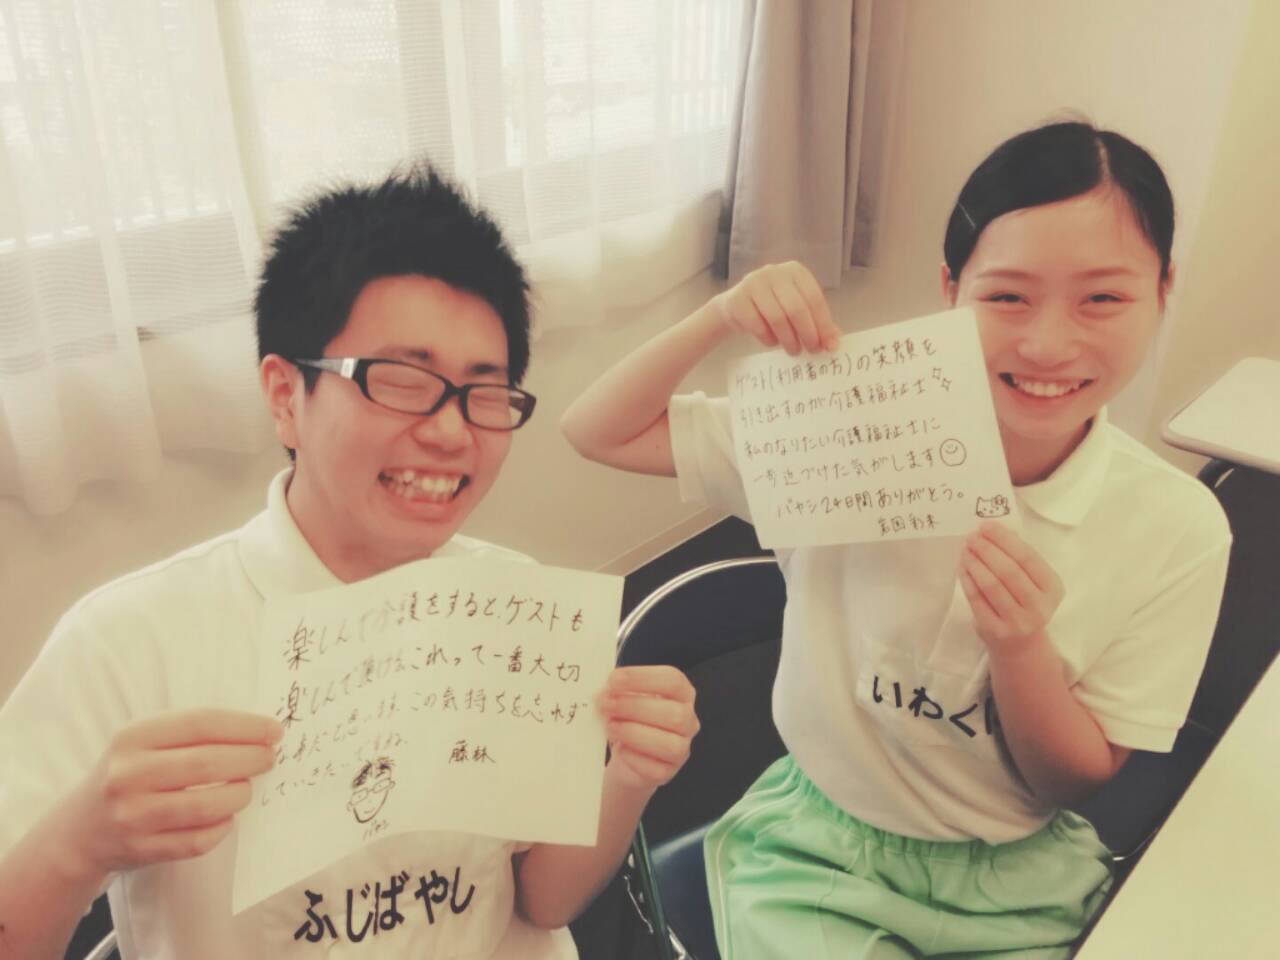 楽しんで介護をすると、ゲストも
楽しんで頂ける、これって一番大切
な事だと思います、この気持ちを忘れず
していきたいですね。
藤林
バヤシ
ふじばやし
ゲスト(利用者の方)の笑顔を
引き出すのが介護福祉士
私のなりたい介護福祉士に
一歩近づけた気がします
バヤシ24日間ありがとう。
岩国彩未
いわくに